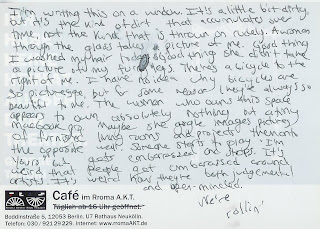 I'm writing this on a window. It's a little bit dirty
but it's the kind of dirt that accumulates over
time, not the kind that is thrown on rudely. A woman
through the glass takes a picture of me. Good thing
I washed my hair today. Good thing she didn't take
a picture of my legs. There's a bicycle to the
right of me. I have no idea why bicycles are
so picturesque, but for some reason they're always so
beautiful to me. The woman who owns this space
appears to own absolutely nothing but a tiny
macbook. Maybe she google images pictures
of furnished living rooms and projects them onto
the opposite wall. Someone starts to play I'm
Yours but gets embarrassed and stops. It's
weird that people get embarrassed around
artists. It's weird how they're both judgemental
and open-minded.
We're
rollin'
Café im Rroma A.K.T.
Täglich ab 16 Uhr geöffnet.
Boddinstraße 5, 12053 Berlin. U7 Rathaus Neukölln.
Telefon: 030 / 921 29 229. Internet: www.rromaAKT.de